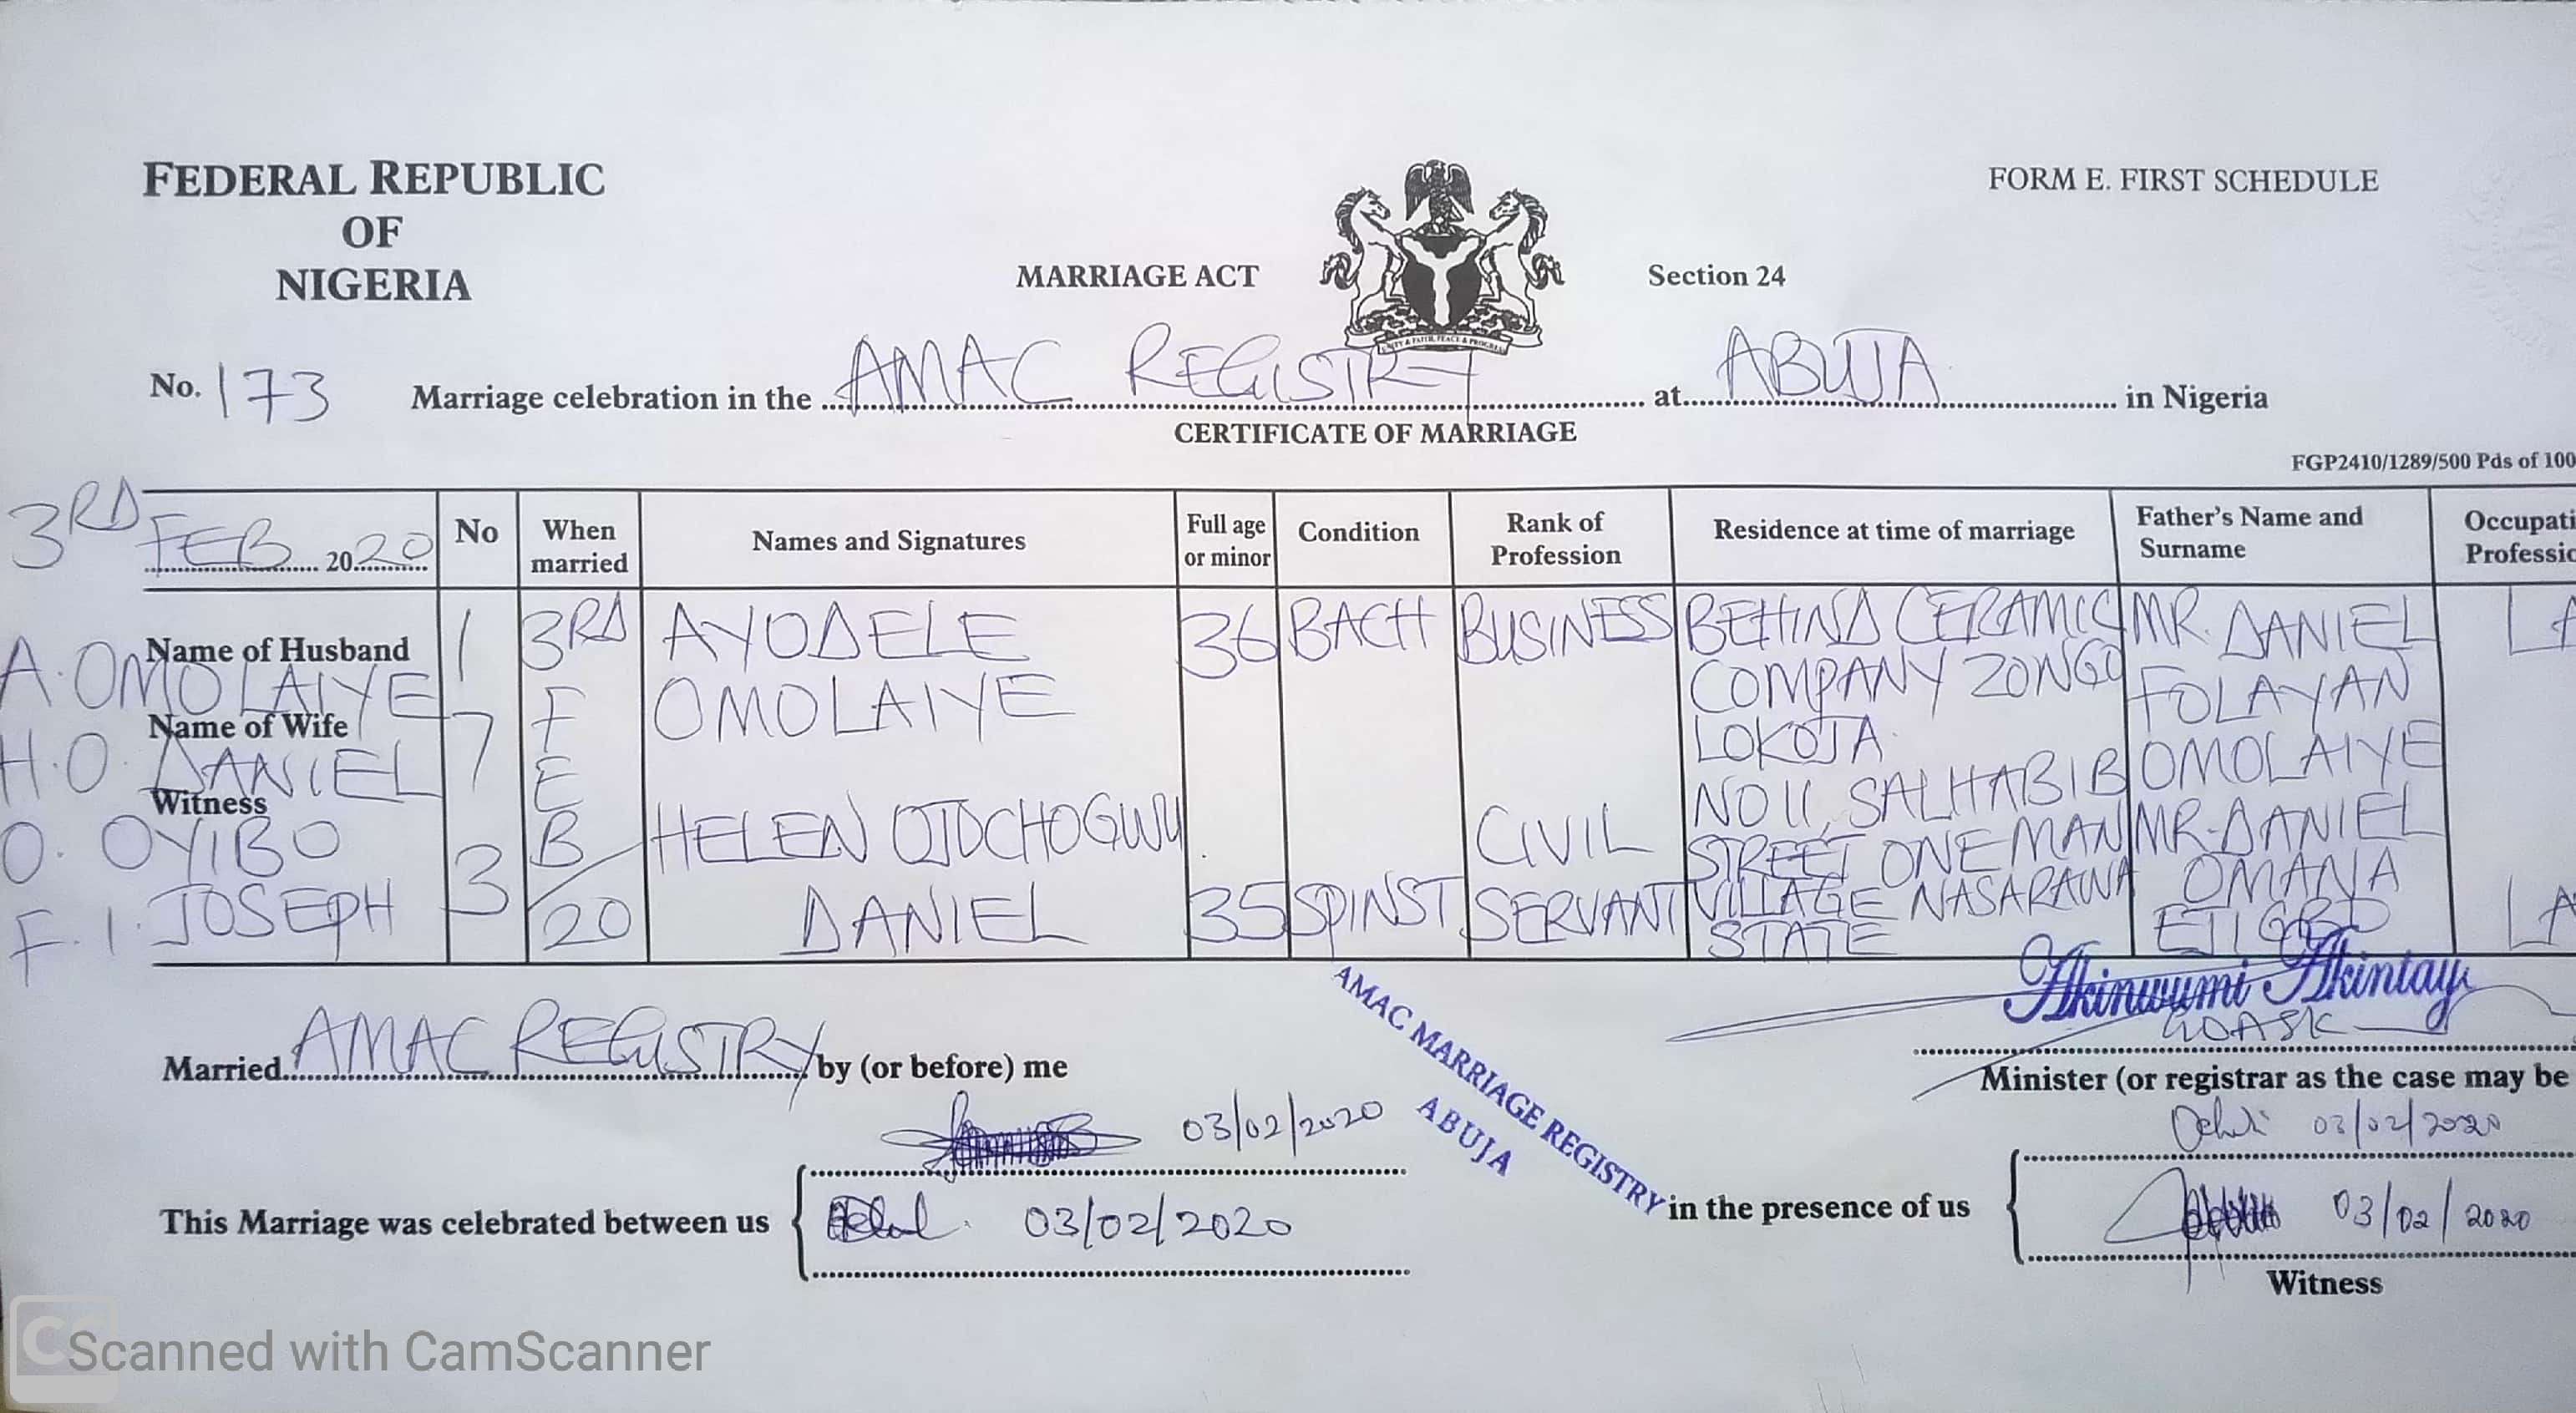 FEDERAL REPUBLIC
OF
NIGERIA
FORM E. FIRST SCHEDULE
MARRIAGE ACT
Section 24
No. 173 Marriage celebration in the AMAC REGISTRY at ABUJA in Nigeria
CERTIFICATE OF MARRIAGE
FGP2410/1289/500 Pds of 100
3RD FEB 2020
No
When married
Names and Signatures
Full age or minor
Condition
Rank of Profession
Residence at time of marriage
Father's Name and Surname
Occupati
Professio
Name of Husband
A. OMOLAIYE
Name of Wife
H.O. DANIEL
Witness
O. OYIBO
F. I. JOSEPH
1
7
3
3RD
F
E
B
20
AYODELE
OMOLAIYE
36
BACH
BUSINESS
BEHIND CERAMIC
COMPANY ZONGO
LOKOJA
MR. DANIEL
FOLAYAN
OMOLAIYE
LA
HELEN OJOCHOGWU
DANIEL
35
SPINST
CIVIL
SERVANT
NO 11, SALHABIB
STREET ONE MAN
VILLAGE NASARAWA
STATE
MR. DANIEL
OMANA
LA
Akinwumi Akintay
Married AMAC REGISTRY by (or before) me
Minister (or registrar as the case may be
AMAC MARRIAGE REGISTRY
ABUJA
03/02/2020
03/02/2020
This Marriage was celebrated between us
03/02/2020
in the presence of us
03/02/2020
Witness
CS Scanned with CamScanner